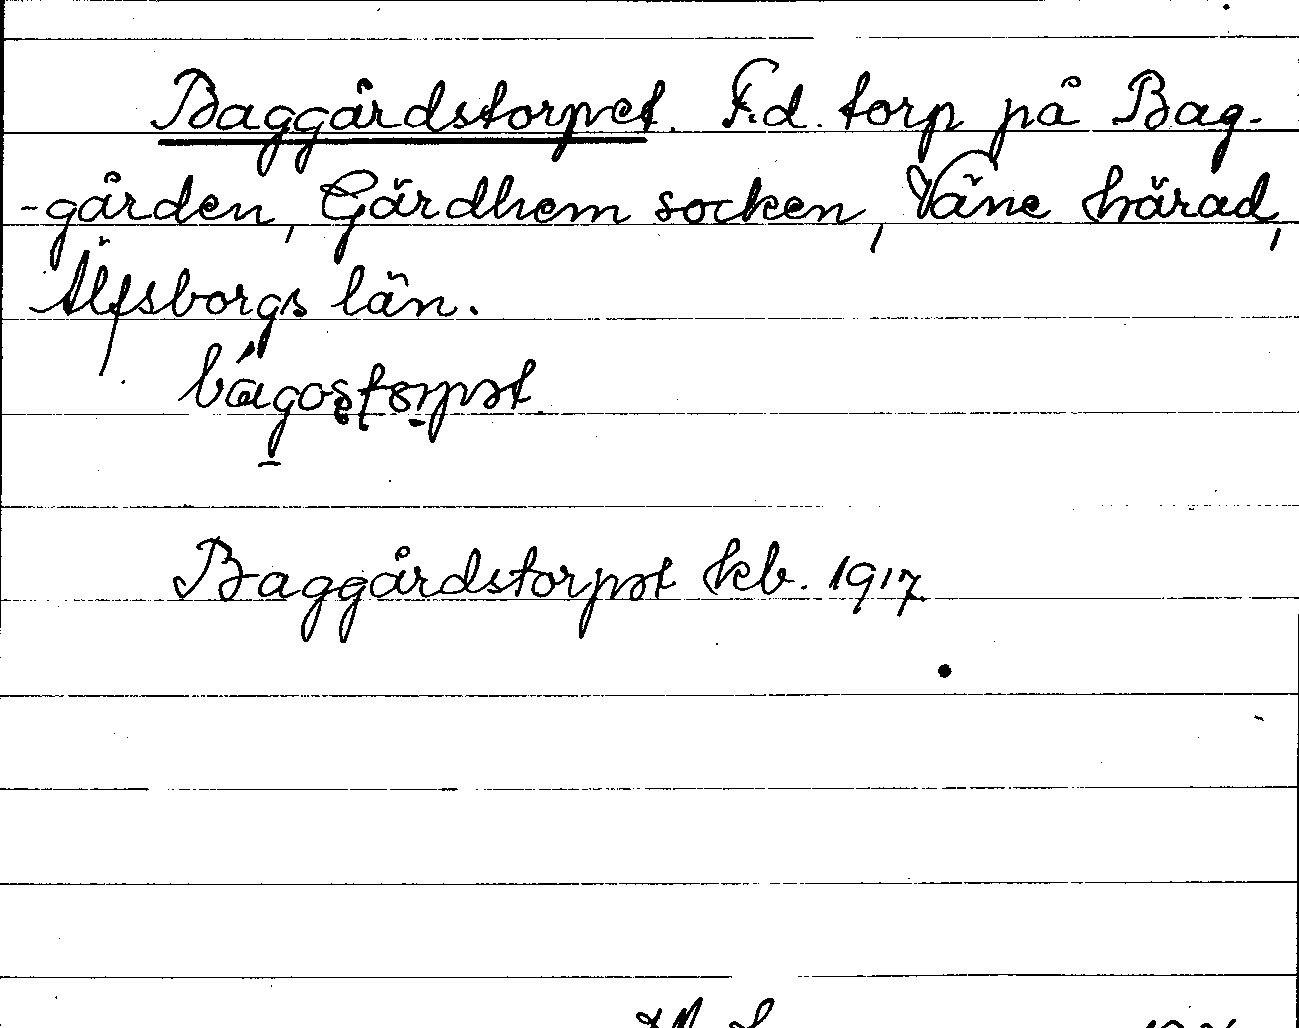 Baggårdstorpet. F.d. torp på Bag-
-gården, Gärdhem socken, Väne härad,
Älfsborgs län.
Baggårdstorpet kb. 1917